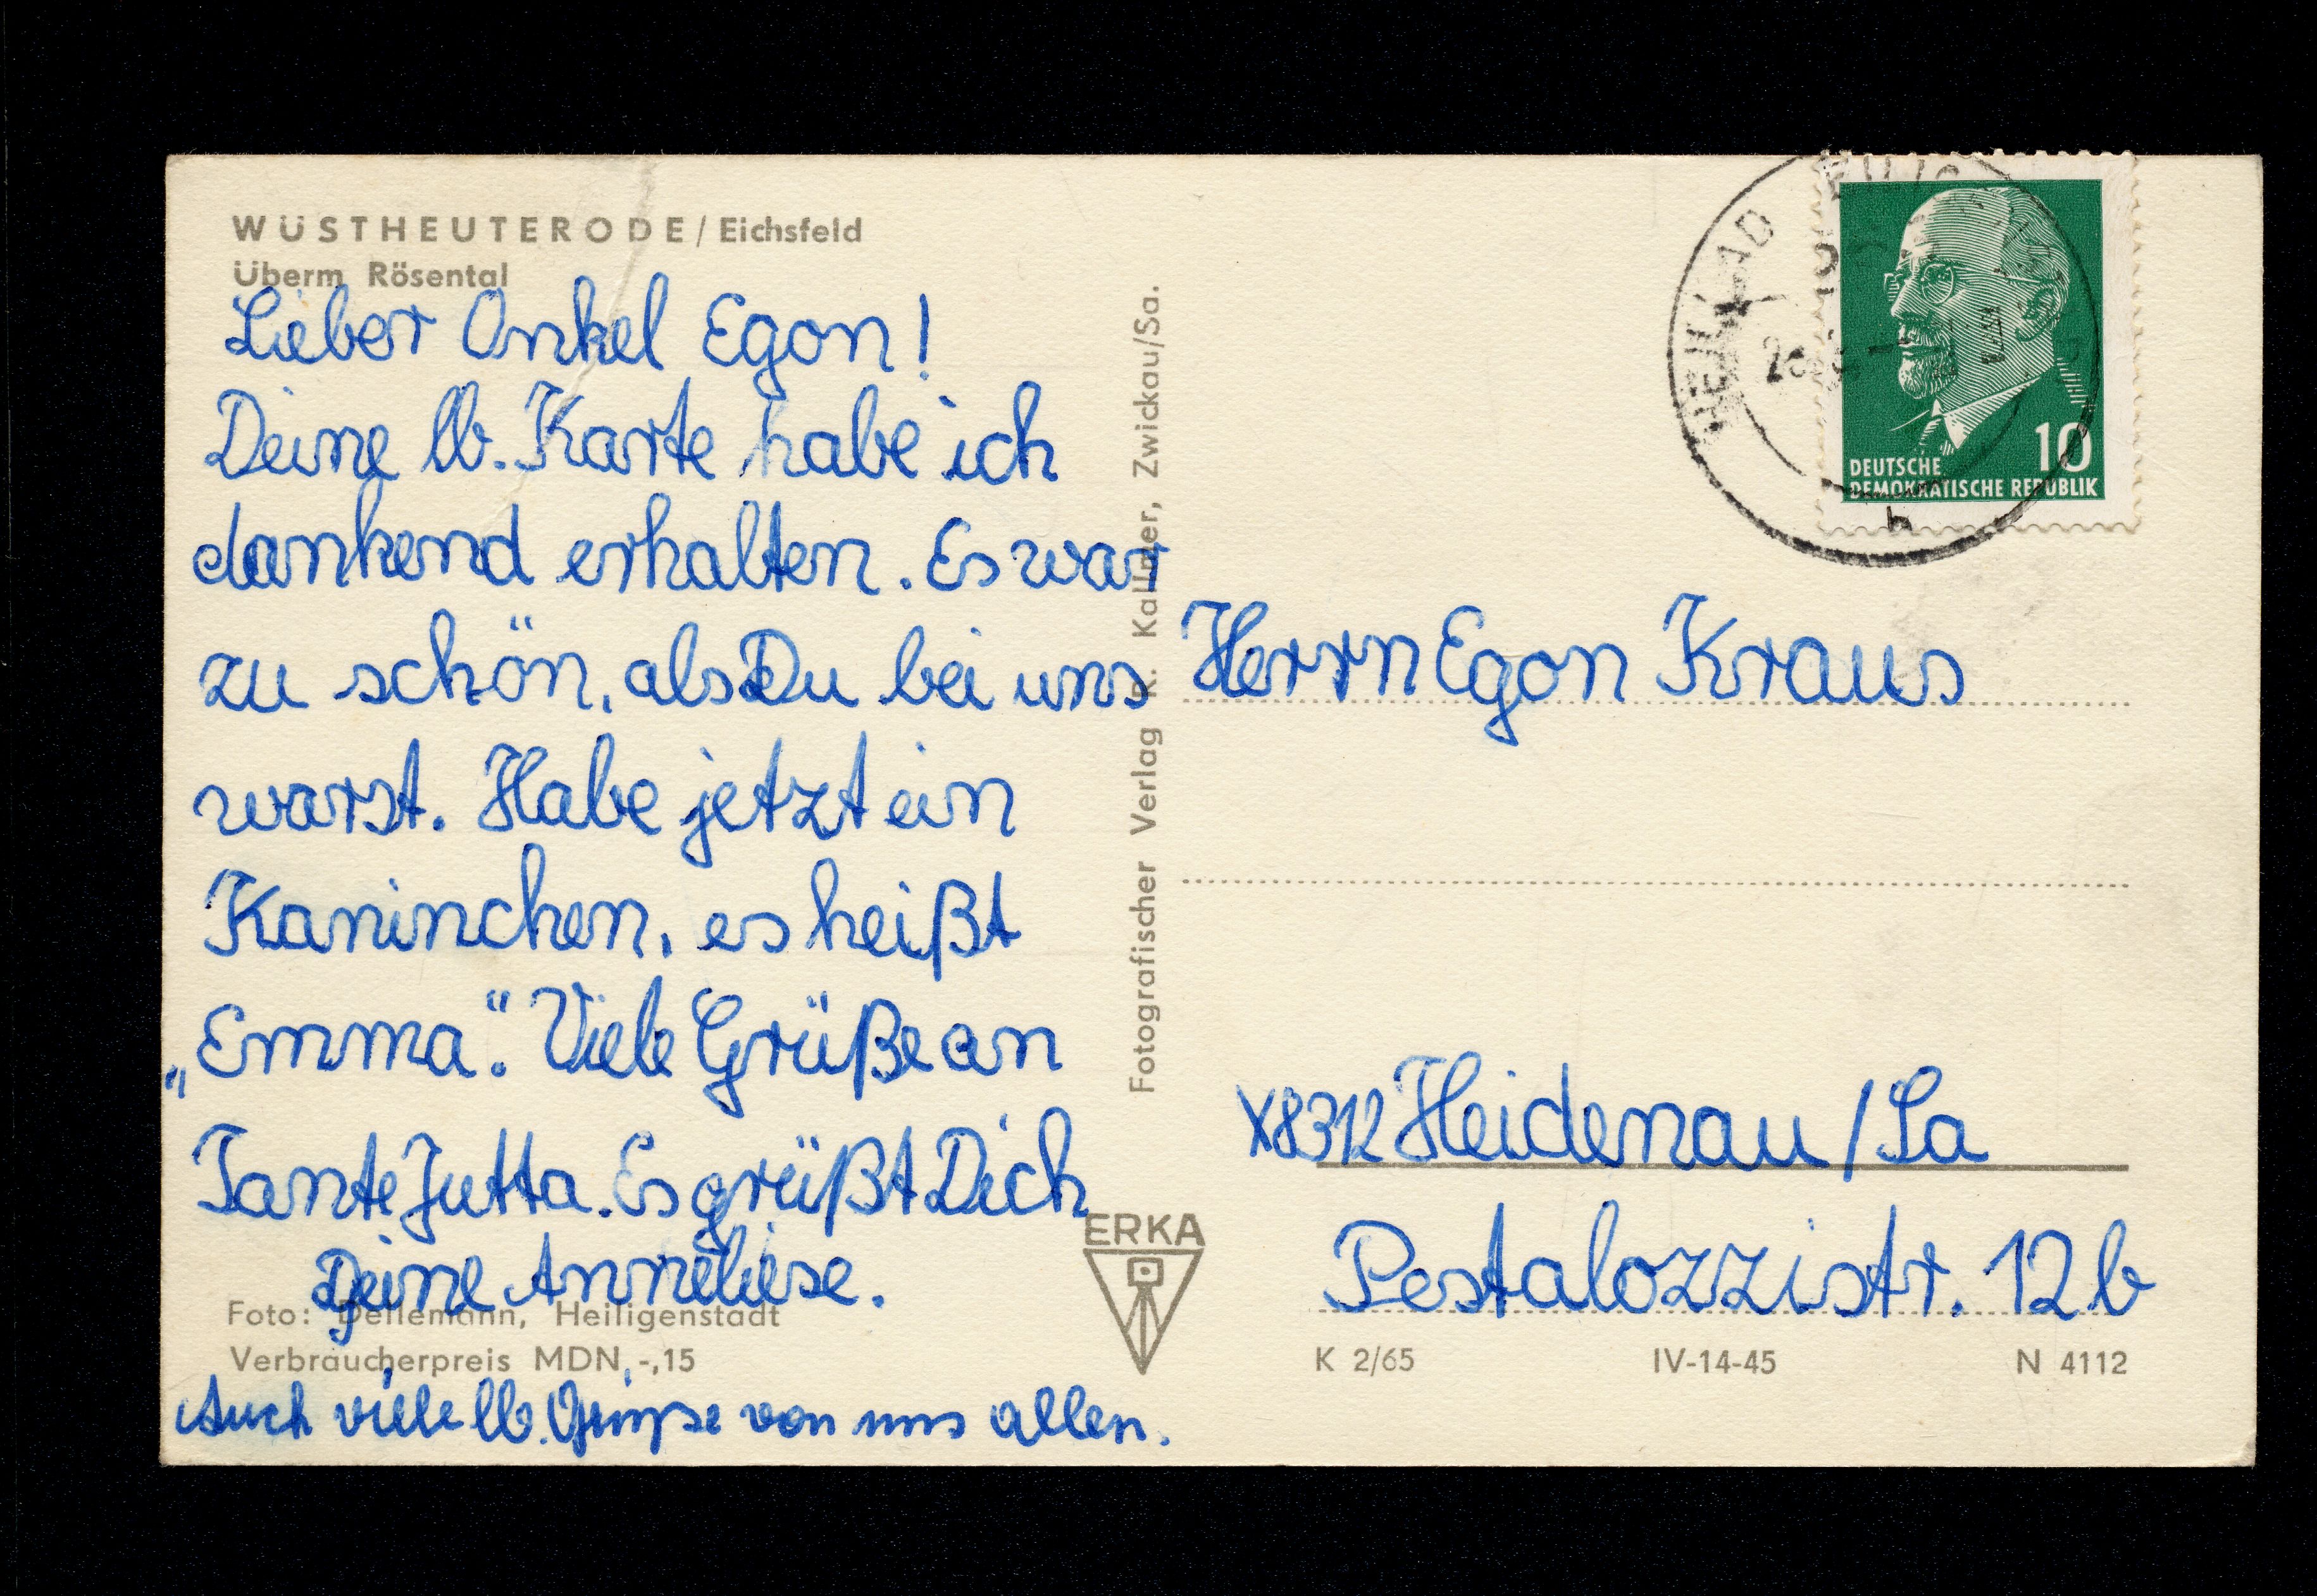 WÜSTHEUTERODE / Eichsfeld
Überm Rösental
Lieber Onkel Egon!
Deine lb. Karte habe ich
dankend erhalten. Es war
zu schön, als Du bei uns
warst. Habe jetzt ein
Kaninchen, es heißt
„Emma“. Viele Grüße an
Tante Jutta. Es grüßt Dich
Deine Anneliese.
Foto: Dellemann, Heiligenstadt
Verbraucherpreis MDN -,15
Auch viele lb. Grüße von uns allen.
Fotografischer Verlag R. Kallmer, Zwickau/Sa.
ERKA
10
DEUTSCHE
DEMOKRATISCHE REPUBLIK
h
Herrn Egon Kraus
X8312 Heidenau / Sa
Pestalozzistr. 12b
K 2/65 IV-14-45 N 4112